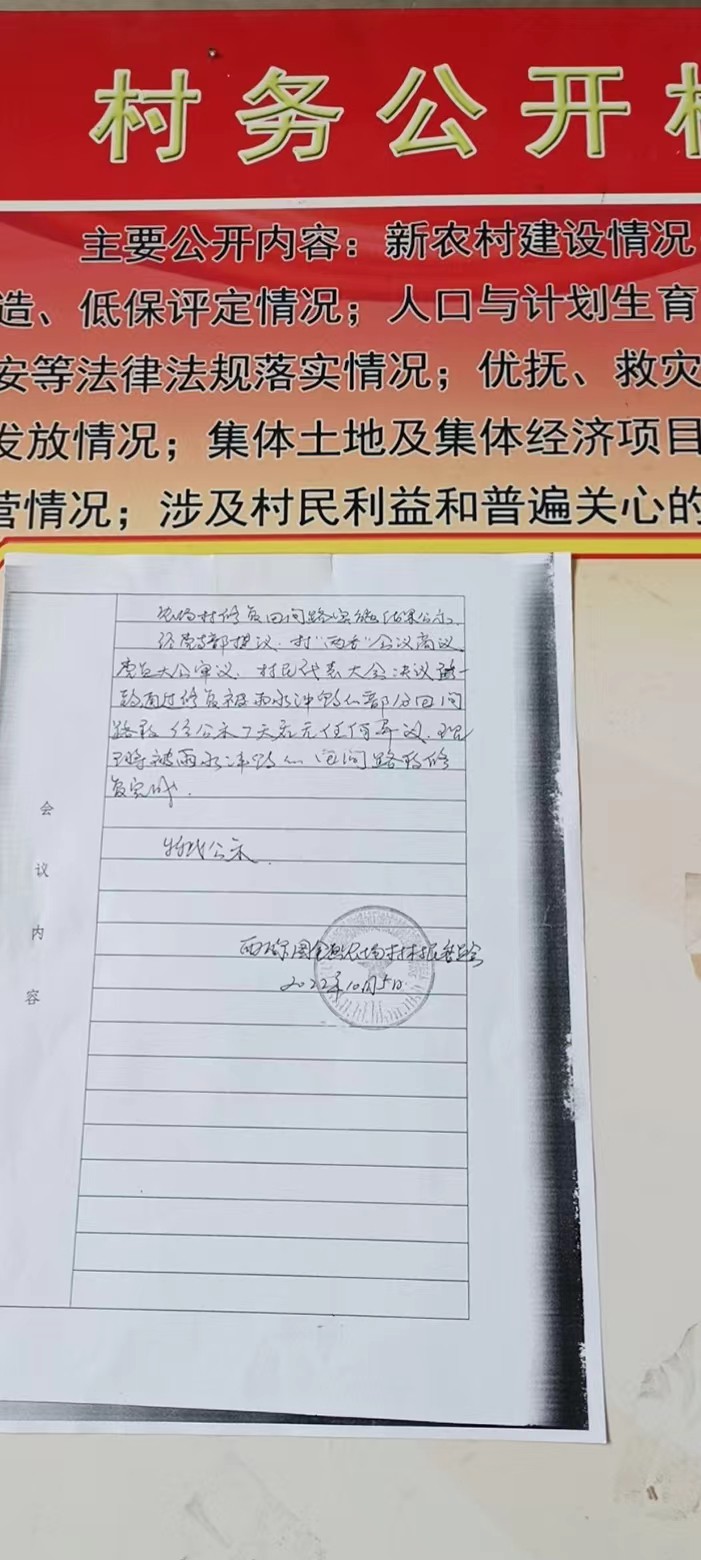 村务公开
主要公开内容：新农村建设情况
造、低保评定情况；人口与计划生育
安等法律法规落实情况；优抚、救灾
发放情况；集体土地及集体经济项目
营情况；涉及村民利益和普遍关心的
农场村修复田间路实施结果公示
经党支部提议，村“两委”会议商议
党员大会审议，村民代表大会决议一
致通过修复被雨水冲毁的部分田间
路段，经公示7天后无任何异议，现
已将被雨水冲毁的田间路段修
复完成.
特此公示.
农场村村民委员会
2022年10月5日
会议内容